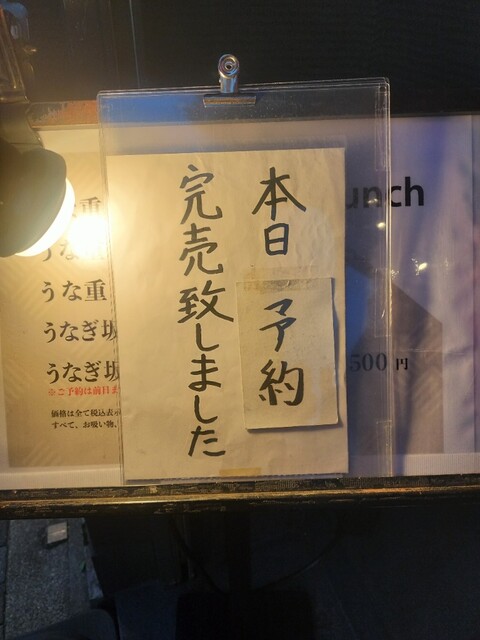 本日
予約
完売致しました
unch
500 円
重
うな重
うなぎ坂
うなぎ坂
※ご予約は前日ま
価格は全て税込表示
すべて、お吸い物、